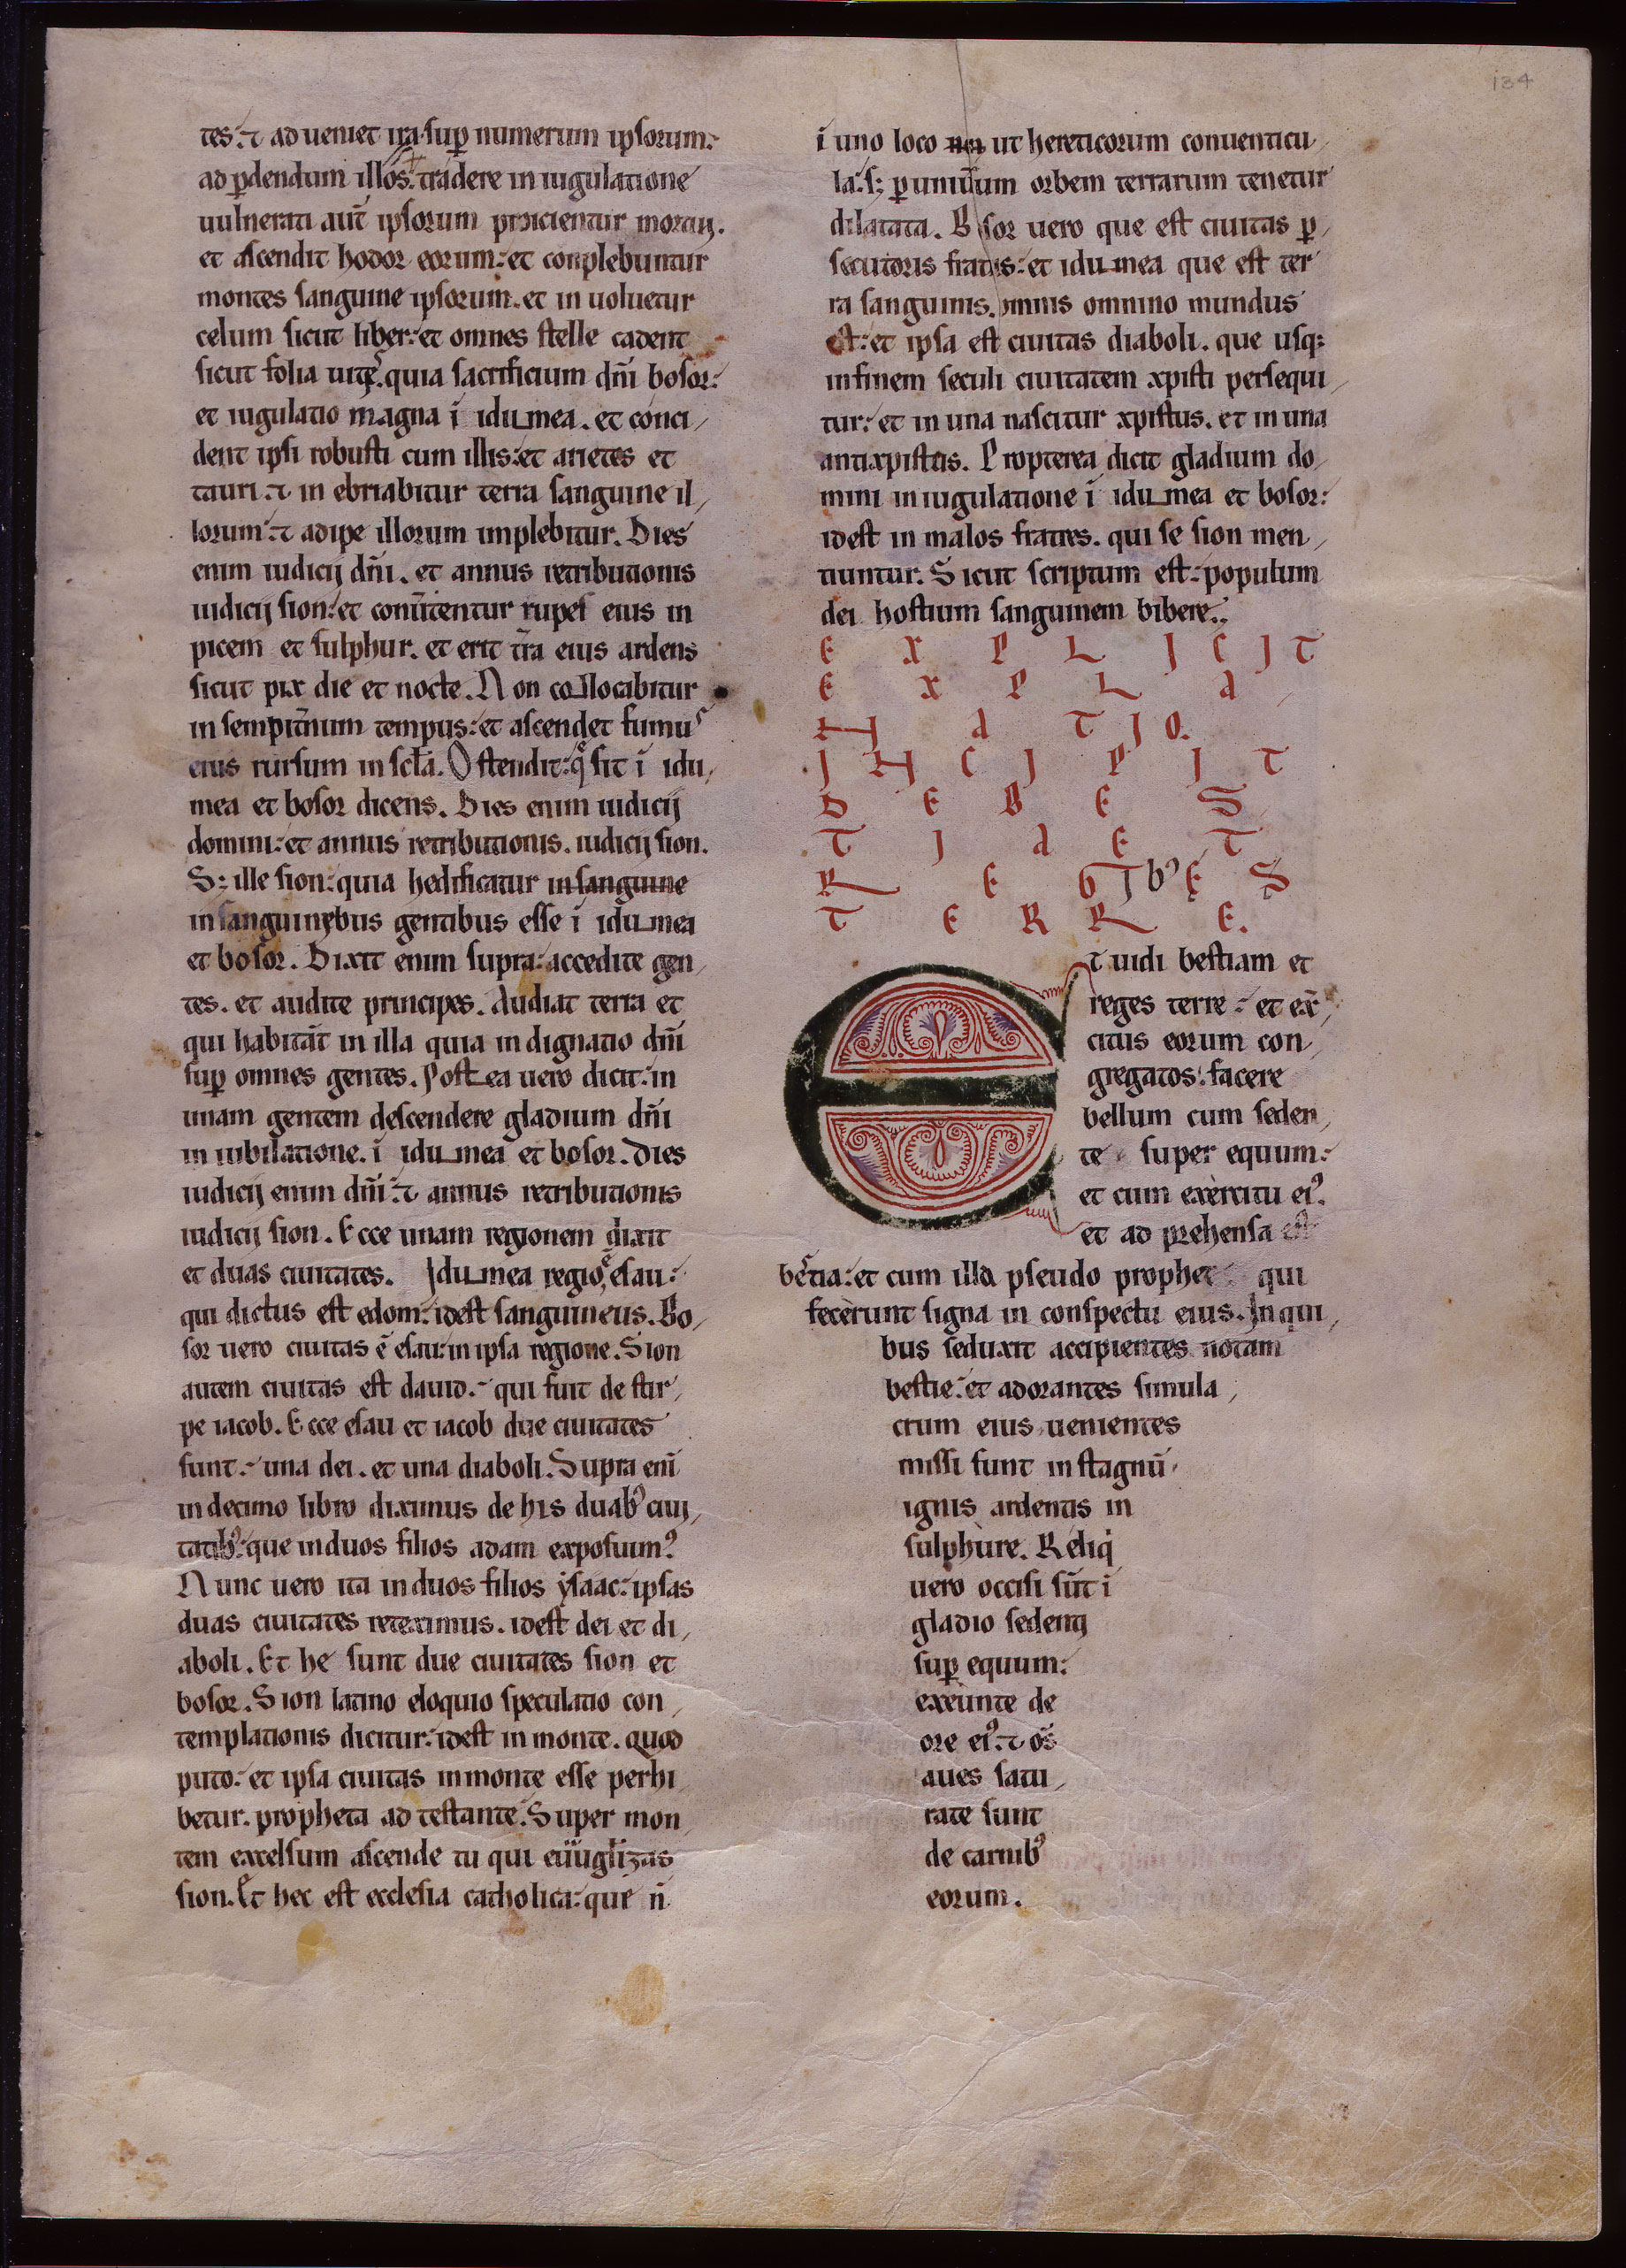 134
tes: ⁊ ad ueniet ira sup̄ numerum ipsorum:
ad ꝑdendum illos. tradere in iugulatione
uulnerati aut̄ ipsorum proicientur mortui.
et ascendit hodor eorum: et conplebuntur
montes sanguine ipsorum. et in uoluetur
celum sicut liber: et omnes stelle cadent
sicut folia uitę. quia sacrificium dn̄i bosor:
et iugulatio magna ī idumea. et conci
dent ipsi robusti cum illis: et arietes et
tauri. ⁊ in ebriabitur terra sanguine il
lorum: ⁊ adipe illorum implebitur. Dies
enim iudicij dn̄i. et annus retributionis
iudicij sion: et conūtentur rupes eius in
picem et sulphur. et erit tr̄a eius ardens
sicut pix die et nocte. Non collocabitur
in sempit̄num tempus: et ascendet fumus
eius rursum in scl̄a. Ostendit: q̊ sit ī idu
mea et bosor dicens. Dies enim iudicij
domini: et annus retributionis. iudicij sion.
S; ille sion: quia hedificatur in sanguine
in sanguinębus gentibus esse ī idumea
et bosor. Dixit enim supra: accedite gen
tes. et audite principes. Audiat terra et
qui habitāt in illa quia in dignatio dn̄i
sup̄ omnes gentes. Post ea uero dicit: in
unam gentem descendere gladium dn̄i
in iubilatione. ī idumea et bosor. Dies
iudicij enim dn̄i: ⁊ annus retributionis
iudicij sion. Ecce unam regionem dixit
et duas ciuitates. Idumea regio, ē esau:
qui dictus est edom: idest sanguineus. Bo
sor uero ciuitas ē esau: in ipsa regione. Sion
autem ciuitas est dauid: qui fuit de stir
pe iacob. Ecce esau et iacob due ciuitates
sunt: una dei. et una diaboli. Supra eni̅
in decimo libro diximus de his duabꝰ ciui
tatibꝰ: que in duos filios adam exposuimꝰ
Nunc uero ita in duos filios ysaac: ipsas
duas ciuitates reteximus. idest dei et di
aboli. Et he sunt due ciuitates sion et
bosor. Sion latino eloquio speculatio con
templationis dicitur: idest in monte. quod
puto: et ipsa ciuitas in monte esse perhi
betur. propheta ad testante. Super mon
tem excelsum ascende tu qui euuglizas
sion. Et hec est ecclesia catholica: que n̄
ī uno loco ut hereticorum conuenticu
la: s; ꝑ uniūsum orbem terrarum tenetur
dilatata. Bosor uero que est ciuitas ꝑ
secutoris fratris: et idumea que est ter
ra sanguinis. omnis omnino mundus
est: et ipsa est ciuitas diaboli. que usq;
in finem seculi ciuitatem xpisti persequi
tur: et in una nascitur xpistus. et in una
antixpistus. Propterea dicit gladium do
mini in iugulatione ī idumea et bosor:
idest in malos fratres. qui se sion men
tiuntur. Sicut scriptum est: populum
dei hostium sanguinem bibere.
EXPLICIT
EXPLA
NATIO.
INCIPIT
DE BES
TIA ET
REGIbꝰES
TERRE.
Et uidi bestiam et
reges terre: et exr̄
citus eorum con
gregatos: facere
bellum cum seden
te super equum:
et cum exercitu eiꝰ.
et ad prehensa est
bestia: et cum illa pseudo prophet qui
fecerunt signa in conspectu eius. In qui
bus seduxit accipientes notam
bestie: et adorantes simula
crum eius uenientes
missi sunt in stagnū
ignis ardentis in
sulphure. Reliqi
uero occisi sūt ī
gladio sedentis
sup̄ equum:
exeunte de
ore eiꝰ. ⁊ os̄
aues satu
rate sunt
de carnibꝰ
eorum.